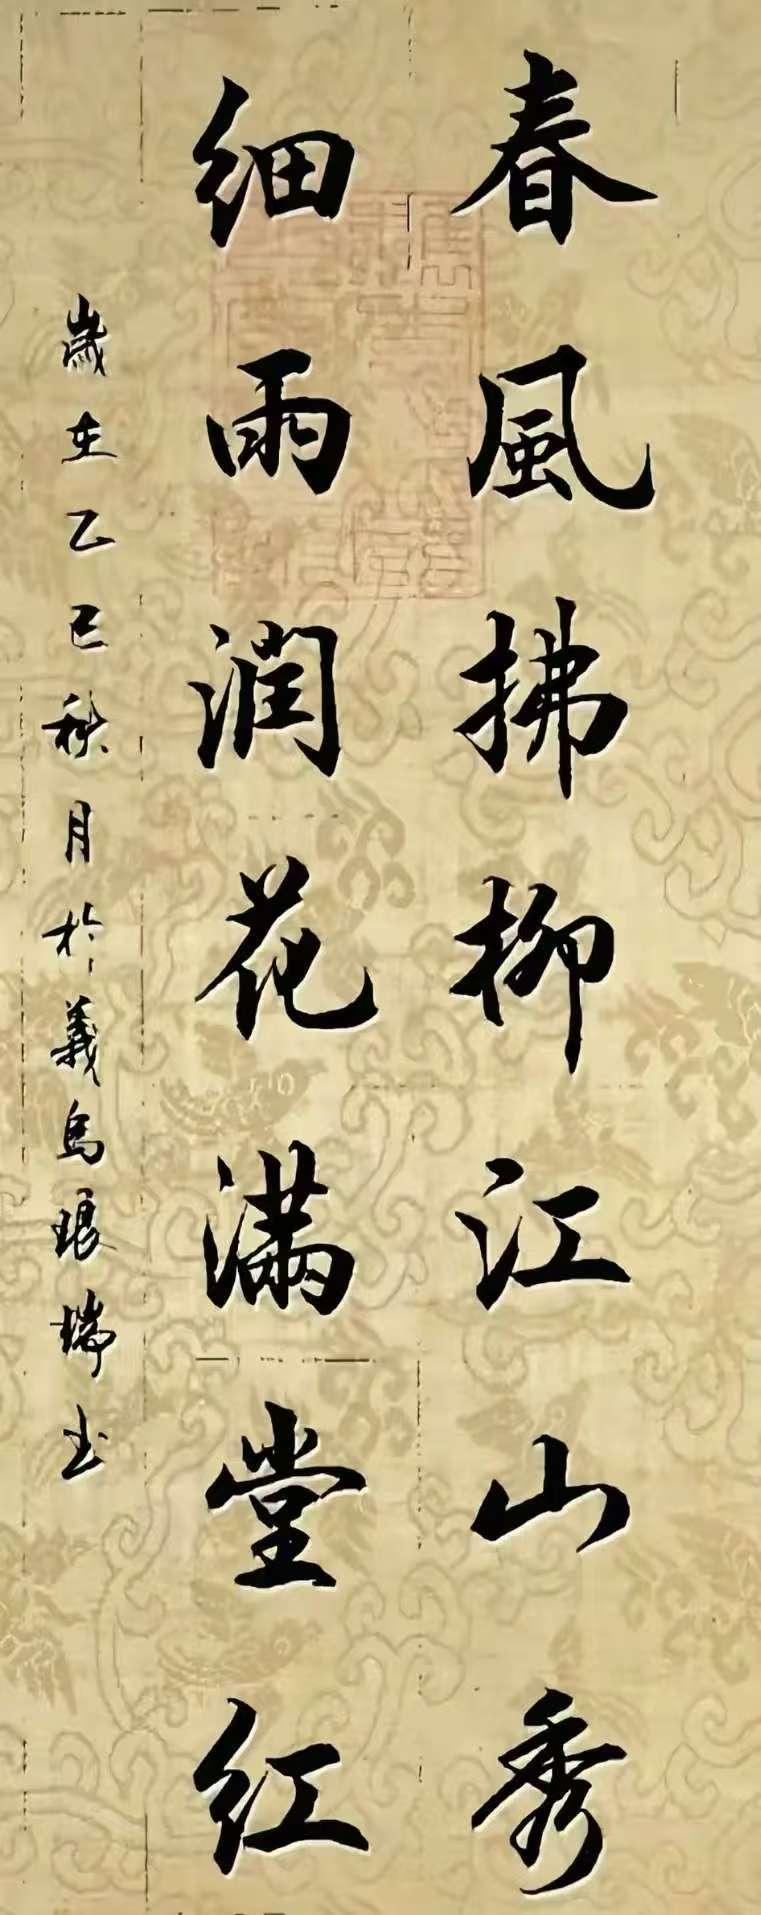 春風拂柳江山秀
细雨润花满堂红
歲在乙巳秋月於義烏琅瑞书